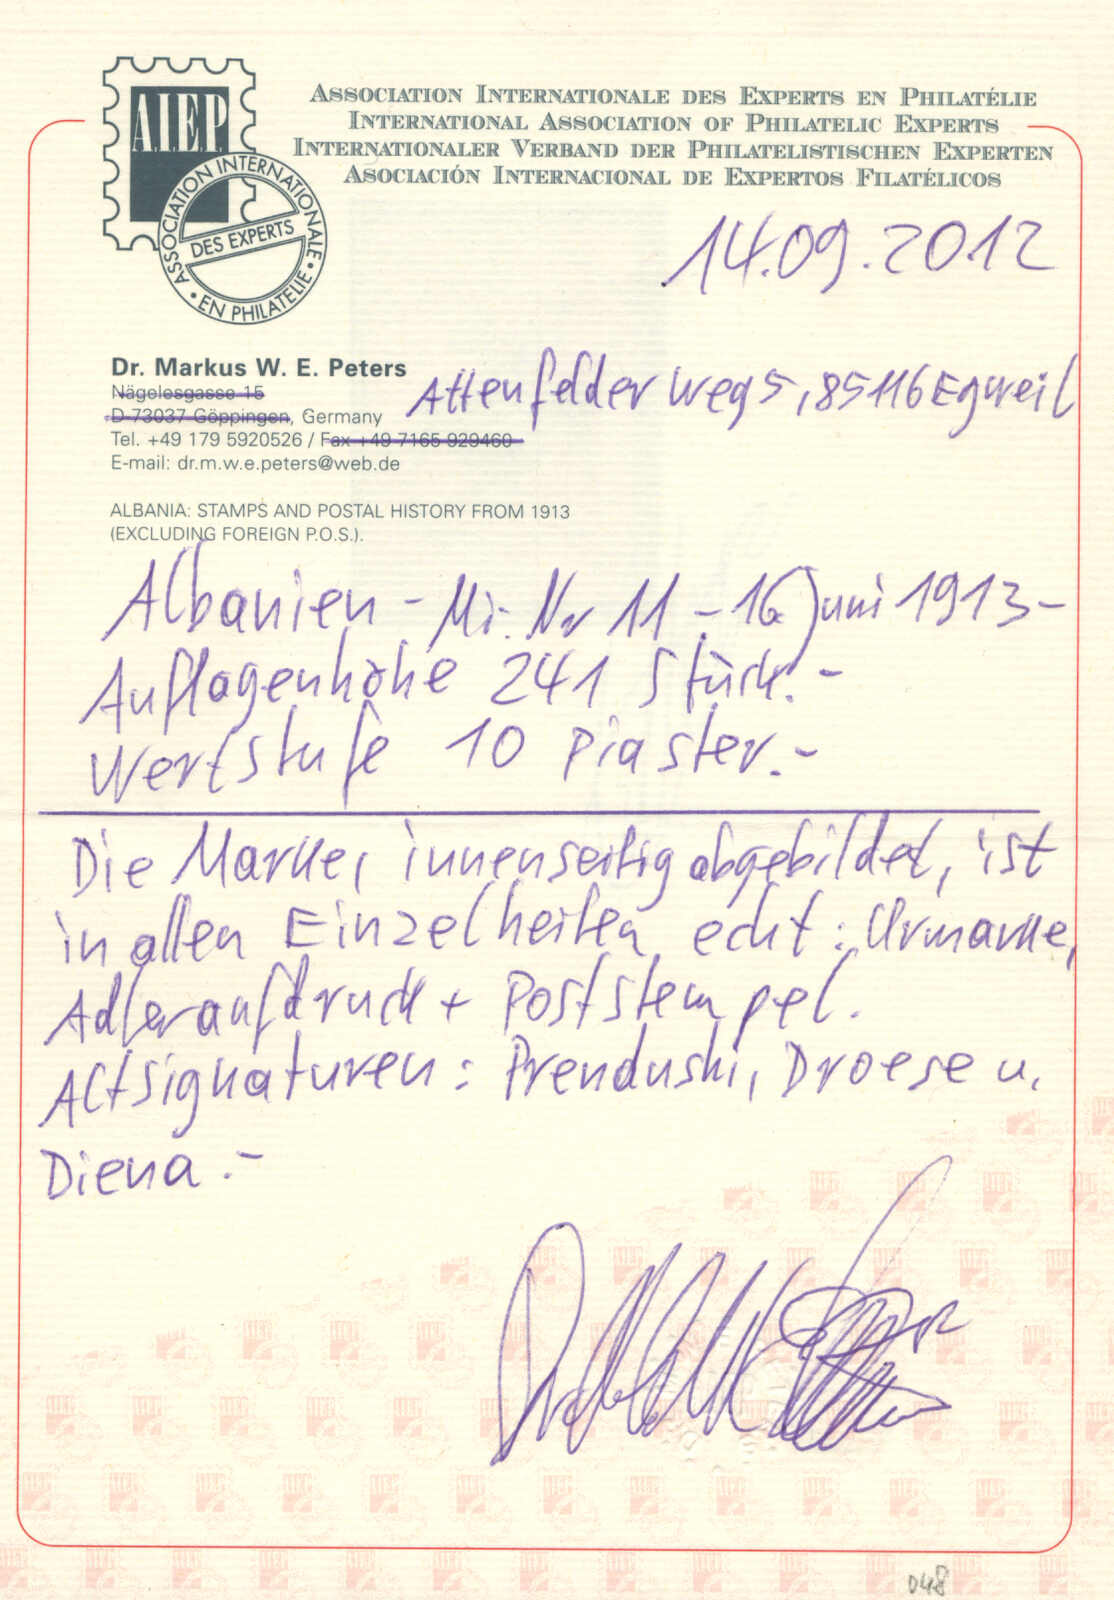 A.I.E.P.
ASSOCIATION INTERNATIONALE
DES EXPERTS
• EN PHILATELIE •
ASSOCIATION INTERNATIONALE DES EXPERTS EN PHILATÉLIE
INTERNATIONAL ASSOCIATION OF PHILATELIC EXPERTS
INTERNATIONALER VERBAND DER PHILATELISTISCHEN EXPERTEN
ASOCIACIÓN INTERNACIONAL DE EXPERTOS FILATÉLICOS
14.09.2012
Dr. Markus W. E. Peters
Nägelesgasse 15
D-73037 Göppingen, Germany
Attenfelder Weg 5, 85116 Egweil
Tel. +49 179 5920526 / Fax +49 7165 929460
E-mail: dr.m.w.e.peters@web.de
ALBANIA: STAMPS AND POSTAL HISTORY FROM 1913
(EXCLUDING FOREIGN P.O.S.).
Albanien - Mi. Nr 11 - 16. Juni 1913 -
Auflagenhöhe 241 Stück. -
Wertstufe 10 Piaster. -
Die Marke, innenseitig abgebildet, ist
in allen Einzelheiten echt: Urmarke,
Adleraufdruck + Poststempel.
Altsignaturen: Prendushi, Droese u.
Diena. -
048